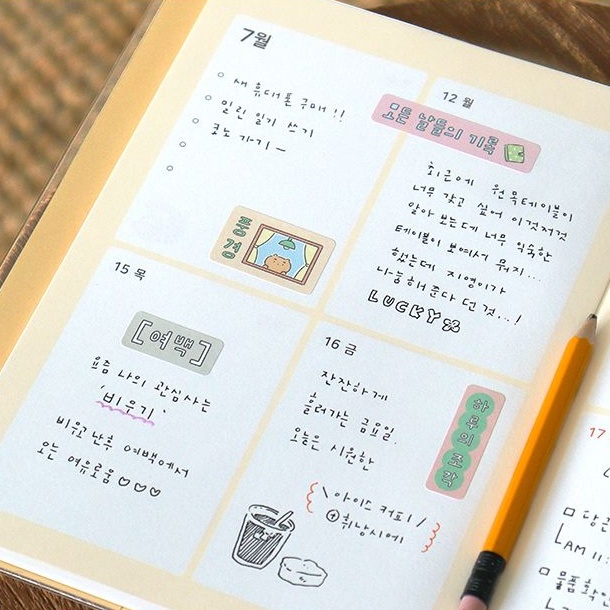 7월
새 휴대폰 구매!!
밀린 일기 쓰기
코노 가기 —
풍경
12 월
모든 날들의 기록
최근에 원목테이블이
너무 갖고 싶어 이것저것
알아 보는데 너무 익숙한
테이블이 보여서 뭐지...
했는데 지영이가
나눔해 준다 던 것...!
LUCKY
15 목
[여백]
요즘 나의 관심사는
'비우기'
비우고 난후 여백에서
오는 여유로움♡♡♡
16 금
잔잔하게
흘러가는 금요일.
오늘은 시원한
\ 아이스 커피 /
⊕ 휘낭시에
하루의 조각
17
□ 당근
AM 11:
□ 물품확인